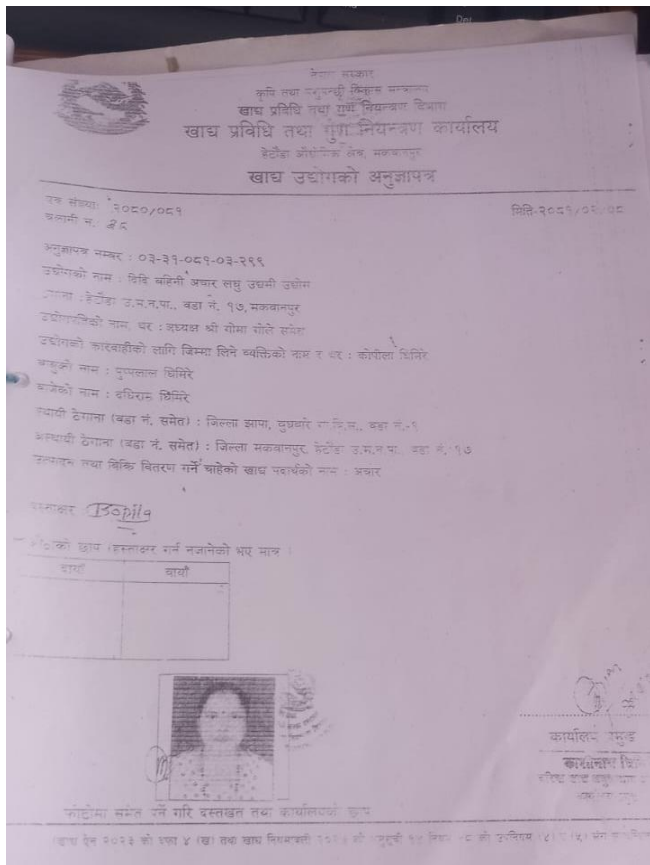 नेपाल सरकार
कृषि तथा पशुपन्छी विकास मन्त्रालय
खाद्य प्रविधि तथा गुण नियन्त्रण विभाग
खाद्य प्रविधि तथा गुण नियन्त्रण कार्यालय
हेटौंडा औद्योगिक क्षेत्र, मकवानपुर
खाद्य उद्योगको अनुज्ञापत्र
पत्र संख्याः २०८०/०८१
मिति-२०८१/०२/०८
चलानी नं.
अनुज्ञापत्र नम्बर : ०३-३१-०८१-०३-२९६
उद्योगको नाम : दिदि बहिनी अचार लघु उद्यमी उद्योग
ठेगाना : हेटौंडा उ.म.न.पा., वडा नं. १७, मकवानपुर
उद्योगपतिको नाम, थर : अध्यक्ष श्री गोमा गोले समेत
उद्योगको कारवाहीको लागि जिम्मा लिने व्यक्तिको नाम र थर : कोपीला घिमिरे
बाबुको नाम : पुष्पलाल घिमिरे
बाजेको नाम : दधिराम घिमिरे
स्थायी ठेगाना (वडा नं. समेत) : जिल्ला झापा, बुधबारे गा.वि.स., वडा नं.-१
अस्थायी ठेगाना (वडा नं. समेत) : जिल्ला मकवानपुर, हेटौंडा उ.म.न.पा. वडा नं. १७
उत्पादन तथा बिक्रि वितरण गर्न चाहेको खाद्य पदार्थको नाम : अचार
हस्ताक्षर : Bopila
औंठाको छाप (हस्ताक्षर गर्न नजानेको भए मात्र)
दायाँ बायाँ
कार्यालय प्रमुख
काशीनाथ
फोटोमा समेत पर्ने गरि दस्तखत तथा कार्यालयको छाप
(खाद्य ऐन २०२३ को दफा ४ (ख) तथा खाद्य नियमावली को अनुसूची १५ नियम को उपनियम (४) र (५) संग सम्बन्धित